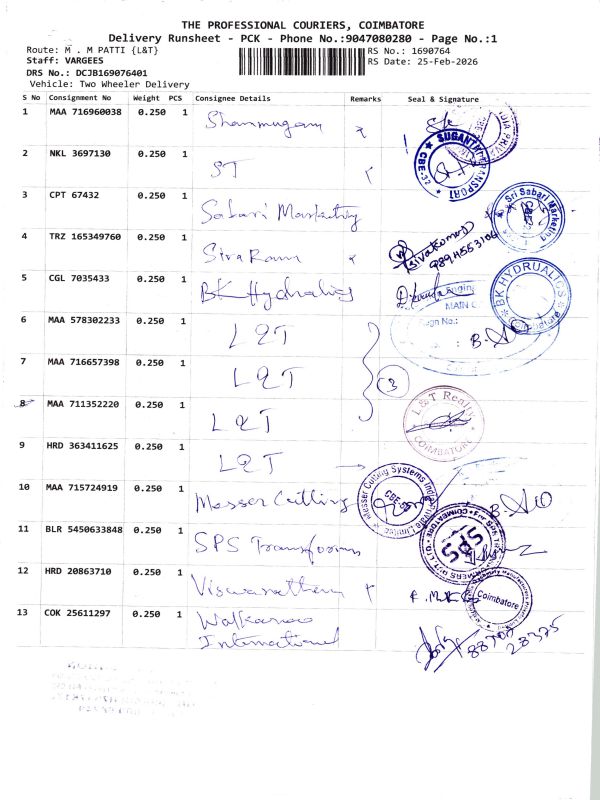 THE PROFESSIONAL COURIERS, COIMBATORE
Delivery Runsheet - PCK - Phone No.:9047080280 - Page No.:1
Route: M . M PATTI {L&T}
RS No.: 1690764
Staff: VARGEES
RS Date: 25-Feb-2026
DRS No.: DCJB169076401
Vehicle: Two Wheeler Delivery
S No Consignment No Weight PCS Consignee Details Remarks Seal & Signature
1 MAA 716960038 0.250 1 Shanmugam
2 NKL 3697130 0.250 1 ST
SUGANTHI TRANSPORT
3 CPT 67432 0.250 1 Sabari Marketing
Sri Sabari Marketing
4 TRZ 165349760 0.250 1 Siva Ram
Sivakumar
5 CGL 7035433 0.250 1 BK Hydralics
BK HYDRUALICS Coimbatore
6 MAA 578302233 0.250 1 L&T
7 MAA 716657398 0.250 1 L&T
3
8 MAA 711352220 0.250 1 L&T
L&T Realty COIMBATORE
9 HRD 363411625 0.250 1 L&T
10 MAA 715724919 0.250 1 Messer Cutting
Messer Cutting Systems India Private Limited
11 BLR 5450633848 0.250 1 SPS Transforms
SPS
12 HRD 20863710 0.250 1 Viswanathan
Coimbatore
13 COK 25611297 0.250 1 Walkaroo
International
88707
28375